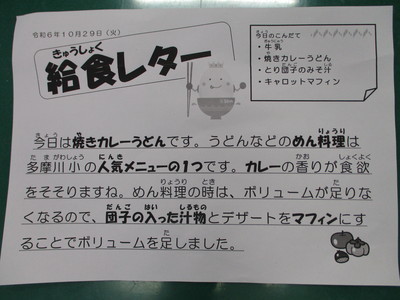 令和6年10月29日（火）
きゅうしょく
給食レター
今日のこんだて
・牛乳
・焼きカレーうどん
・とり団子のみそ汁
・キャロットマフィン
今日は焼きカレーうどんです。うどんなどのめん料理は
多摩川小の人気メニューの1つです。カレーの香りが食欲
をそそりますね。めん料理の時は、ボリュームが足りな
くなるので、団子の入った汁物とデザートをマフィンにす
ることでボリュームを足しました。